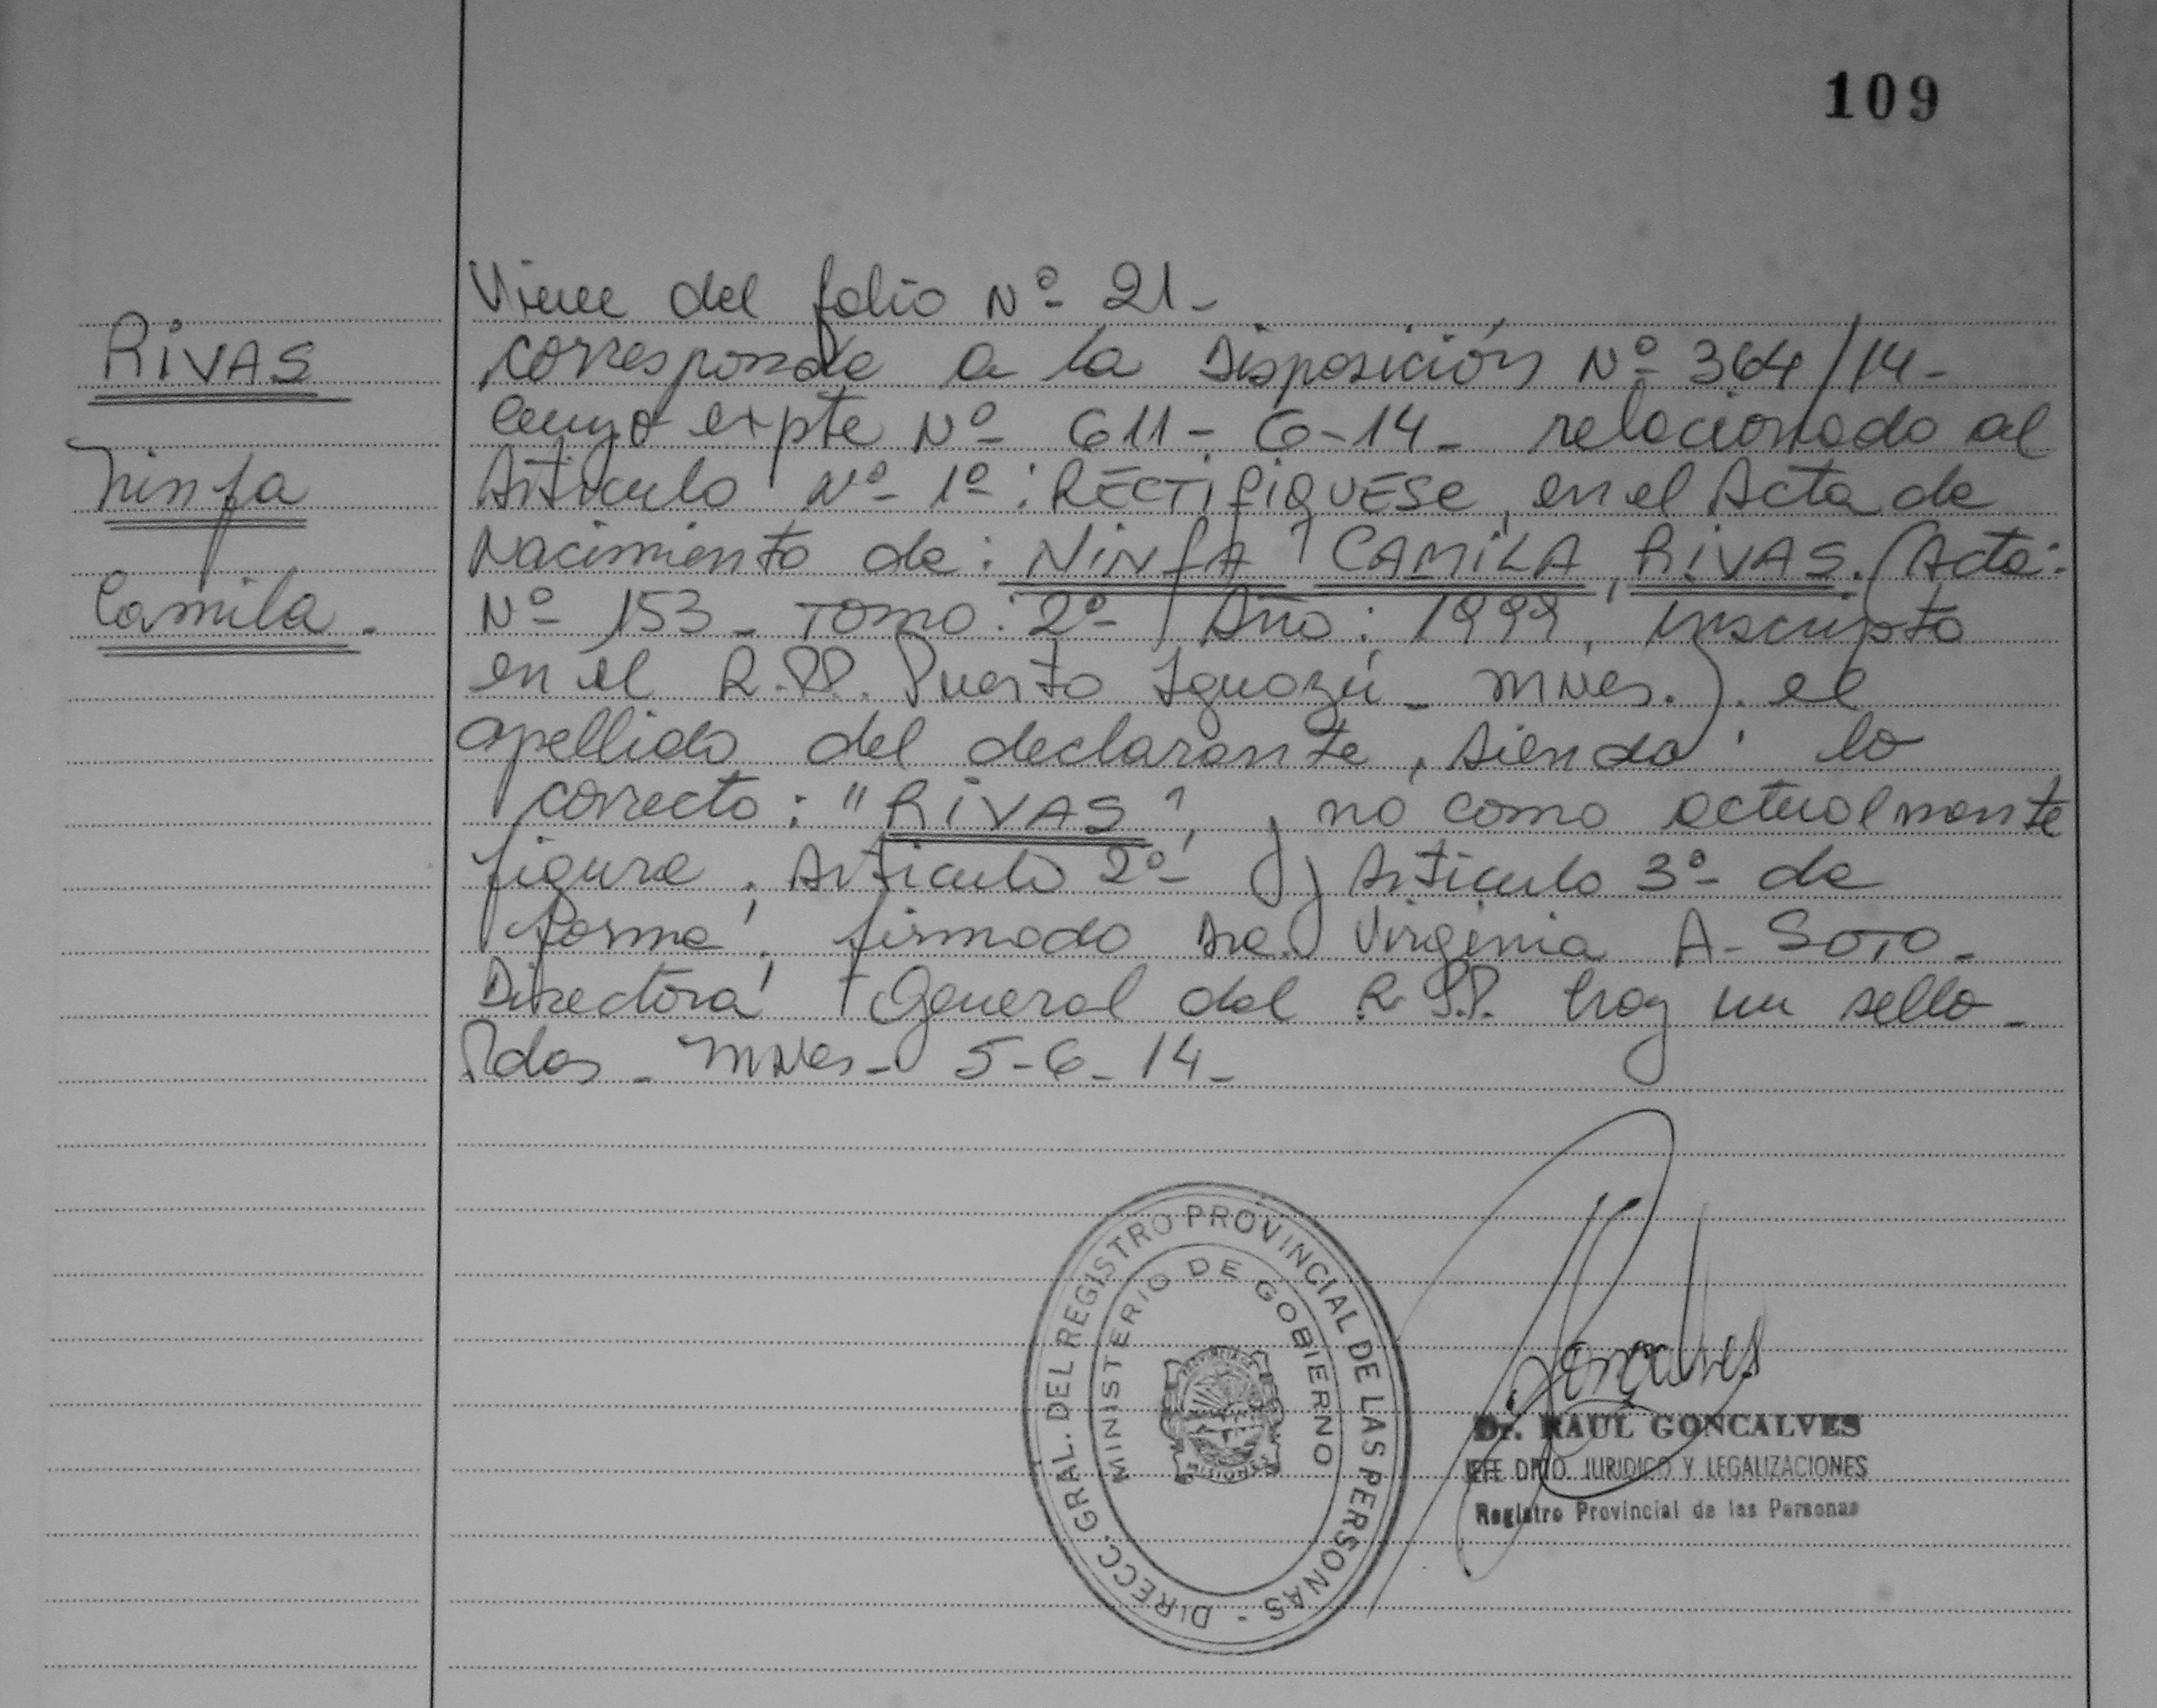 109
RiVAS
Ninfa
Camila -
Viene del folio Nº 21 -
corresponde a la Disposición Nº 364/14 -
cuyo expte Nº 611 - G - 14 - relacionado al
Artículo Nº 1º : RECTIFIQUESE, en el Acta de
Nacimiento de : NiNfA CAMiLA RiVAS. (Acta :
Nº 153 - TOMO : 2º - Año : 1999, inscripta
en el R.P.P. Puerto Iguazú - Mnes.). el
apellido del declarante, siendo lo
correcto : "RiVAS", y no como actualmente
figura, Artículo 2º y Artículo 3º de
forma, firmado Dra. Virginia A - SOTO -
Directora General del R.P.P. hay un sello -
Pdas - Mnes - 5 - 6 - 14 -
DIRECC. GRAL. DEL REGISTRO PROVINCIAL DE LAS PERSONAS -
MINISTERIO DE GOBIERNO
PROVINCIA DE
MISIONES
Goncalves
Dr. RAUL GONCALVES
JEFE DPTO. JURIDICO Y LEGALIZACIONES
Registro Provincial de las Personas